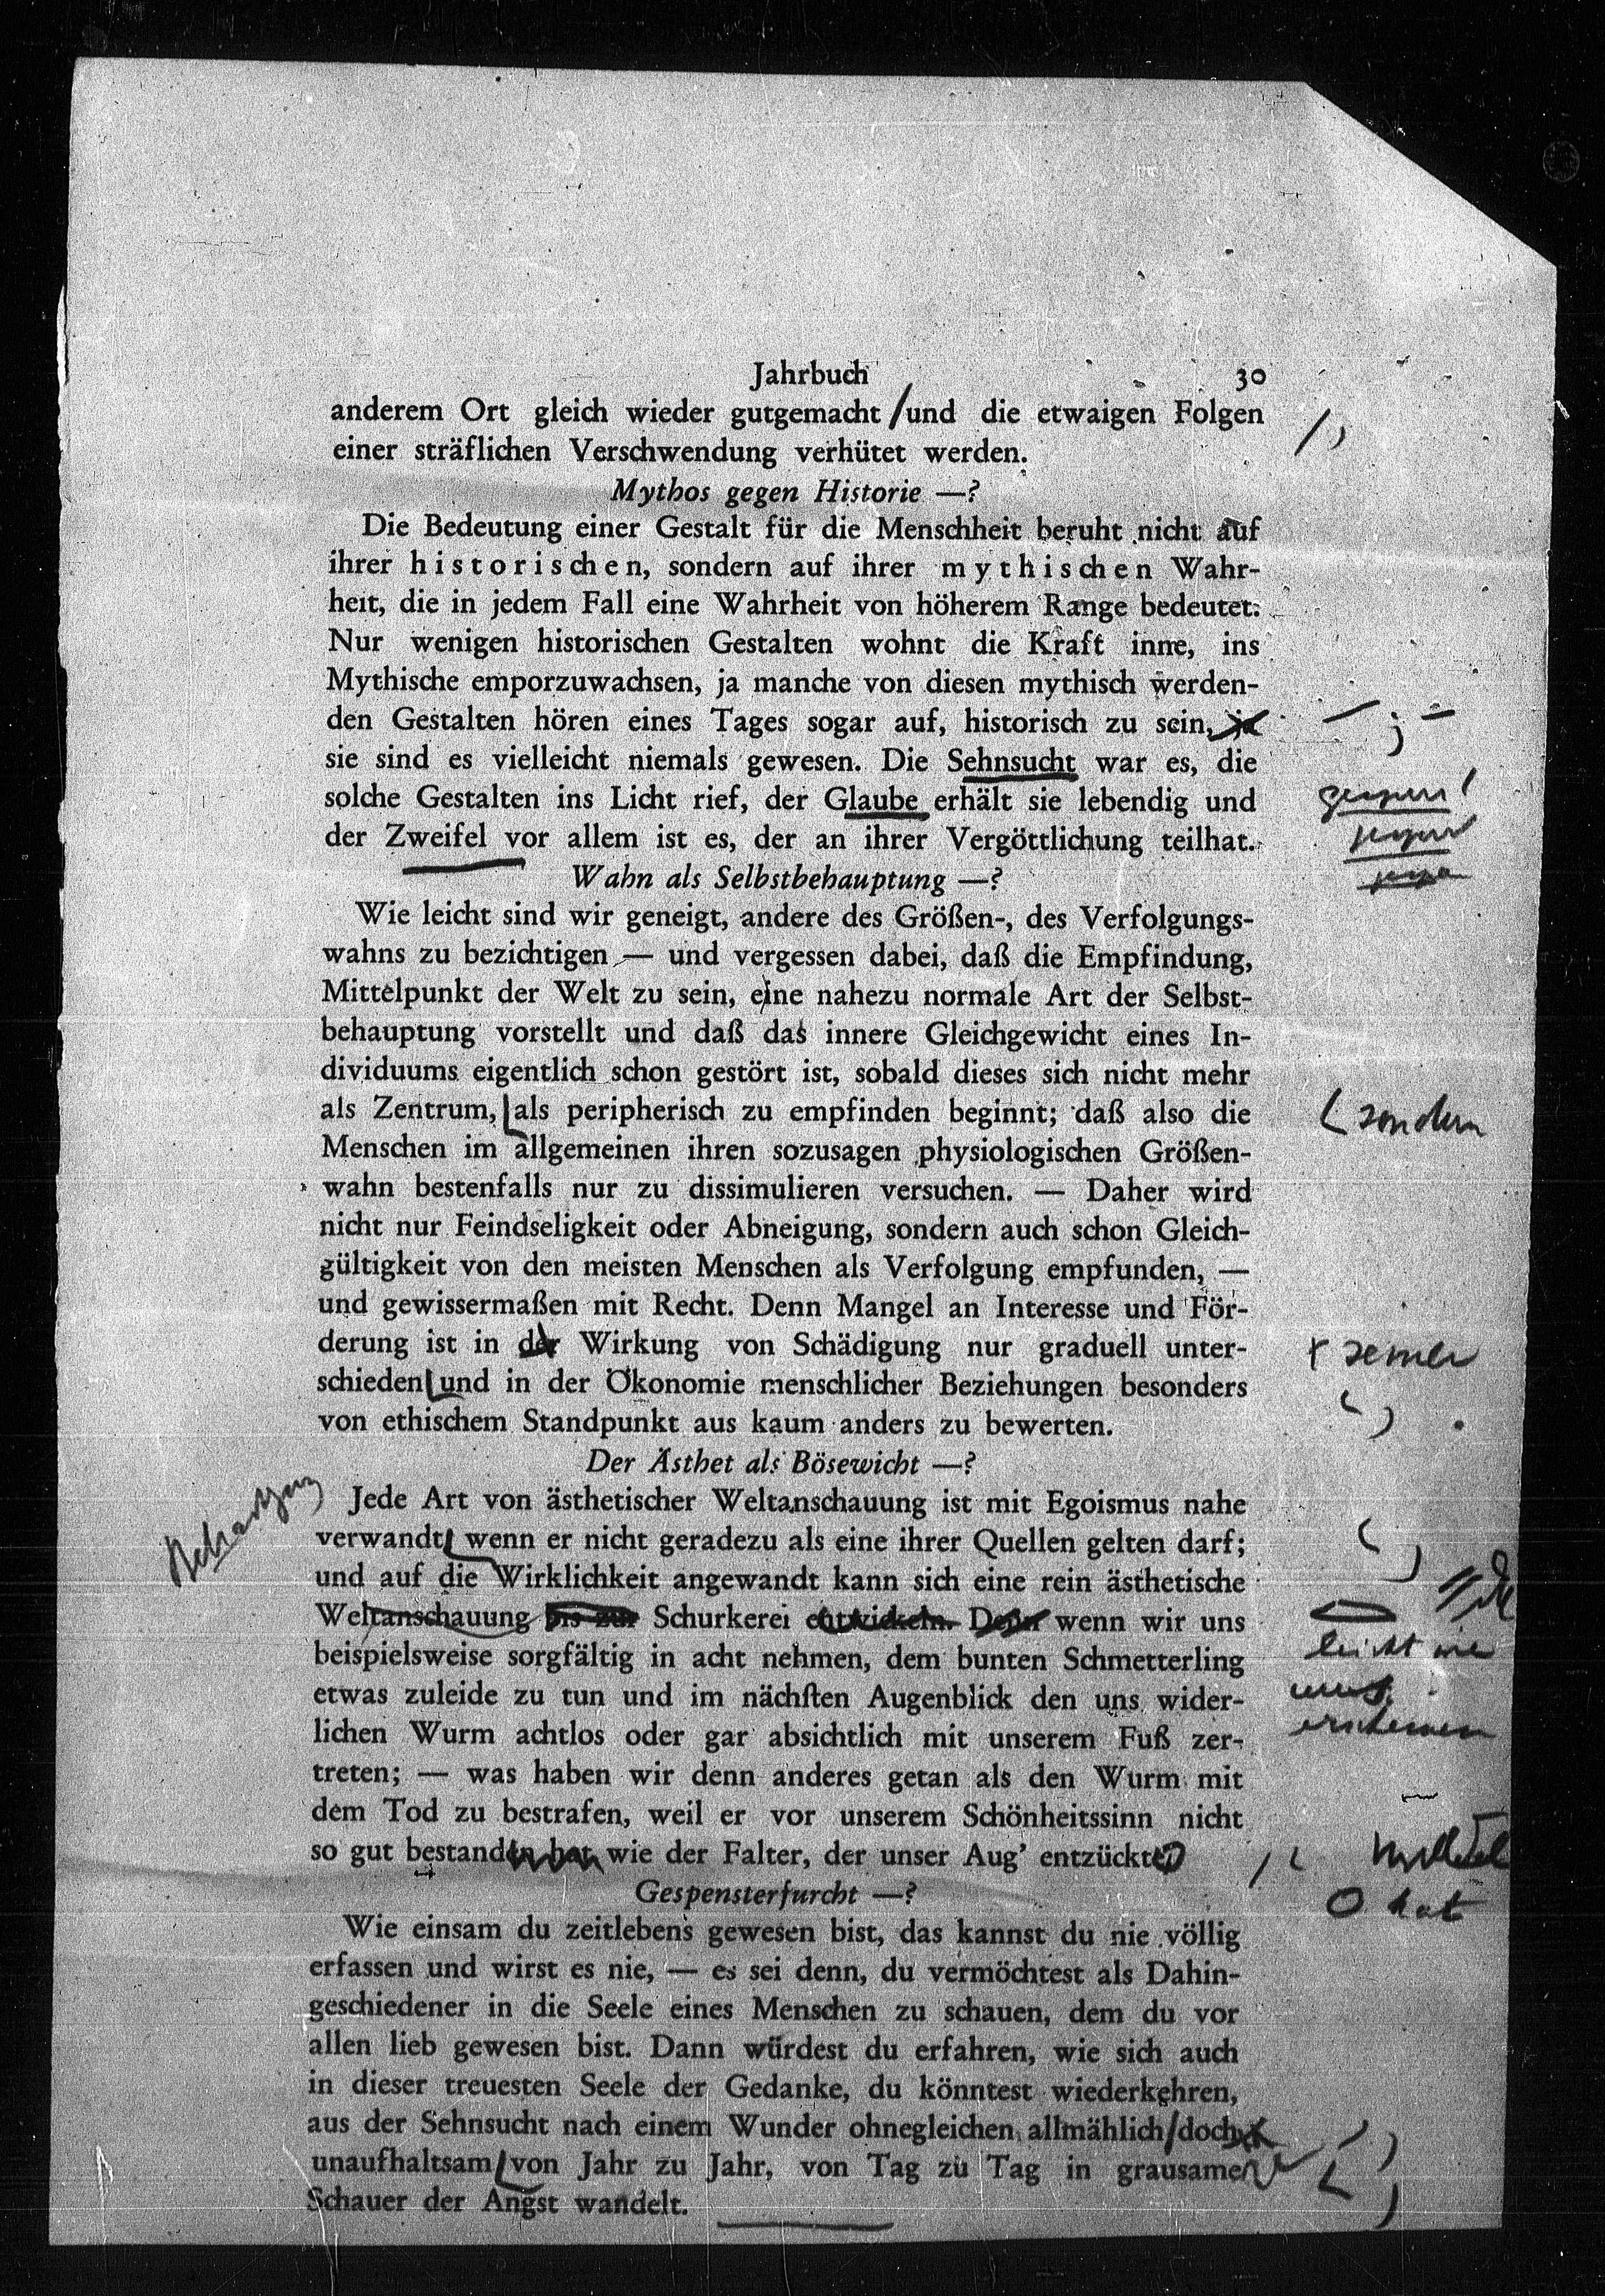 Jahrbuch 30
anderem Ort gleich wieder gutgemacht und die etwaigen Folgen
einer sträflichen Verschwendung verhütet werden.
Mythos gegen Historie —?
Die Bedeutung einer Gestalt für die Menschheit beruht nicht auf
ihrer historischen, sondern auf ihrer mythischen Wahr-
heit, die in jedem Fall eine Wahrheit von höherem Range bedeutet.
Nur wenigen historischen Gestalten wohnt die Kraft inne, ins
Mythische emporzuwachsen, ja manche von diesen mythisch werden-
den Gestalten hören eines Tages sogar auf, historisch zu sein, ja
sie sind es vielleicht niemals gewesen. Die Sehnsucht war es, die
solche Gestalten ins Licht rief, der Glaube erhält sie lebendig und
gesperrt
der Zweifel vor allem ist es, der an ihrer Vergöttlichung teilhat.
gesperrt
Wahn als Selbstbehauptung —?
Wie leicht sind wir geneigt, andere des Größen-, des Verfolgungs-
wahns zu bezichtigen — und vergessen dabei, daß die Empfindung,
Mittelpunkt der Welt zu sein, eine nahezu normale Art der Selbst-
behauptung vorstellt und daß das innere Gleichgewicht eines In-
dividuums eigentlich schon gestört ist, sobald dieses sich nicht mehr
als Zentrum, als peripherisch zu empfinden beginnt; daß also die
sondern
Menschen im allgemeinen ihren sozusagen physiologischen Größen-
wahn bestenfalls nur zu dissimulieren versuchen. — Daher wird
nicht nur Feindseligkeit oder Abneigung, sondern auch schon Gleich-
gültigkeit von den meisten Menschen als Verfolgung empfunden, —
und gewissermaßen mit Recht. Denn Mangel an Interesse und För-
derung ist in der Wirkung von Schädigung nur graduell unter-
seiner
schieden und in der Ökonomie menschlicher Beziehungen besonders
von ethischem Standpunkt aus kaum anders zu bewerten.
Der Ästhet als Bösewicht —?
Jede Art von ästhetischer Weltanschauung ist mit Egoismus nahe
verwandt wenn er nicht geradezu als eine ihrer Quellen gelten darf;
und auf die Wirklichkeit angewandt kann sich eine rein ästhetische
Weltanschauung bis zur Schurkerei entwickeln. Denn wenn wir uns
leicht wie
beispielsweise sorgfältig in acht nehmen, dem bunten Schmetterling
etwas zuleide zu tun und im nächsten Augenblick den uns wider-
erscheinen
lichen Wurm achtlos oder gar absichtlich mit unserem Fuß zer-
treten; — was haben wir denn anderes getan als den Wurm mit
dem Tod zu bestrafen, weil er vor unserem Schönheitssinn nicht
so gut bestanden hat, wie der Falter, der unser Aug' entzückte?
hat
Gespensterfurcht —?
Wie einsam du zeitlebens gewesen bist, das kannst du nie völlig
erfassen und wirst es nie, — es sei denn, du vermöchtest als Dahin-
geschiedener in die Seele eines Menschen zu schauen, dem du vor
allen lieb gewesen bist. Dann würdest du erfahren, wie sich auch
in dieser treuesten Seele der Gedanke, du könntest wiederkehren,
aus der Sehnsucht nach einem Wunder ohnegleichen allmählich doch
unaufhaltsam von Jahr zu Jahr, von Tag zu Tag in grausame
Schauer der Angst wandelt.